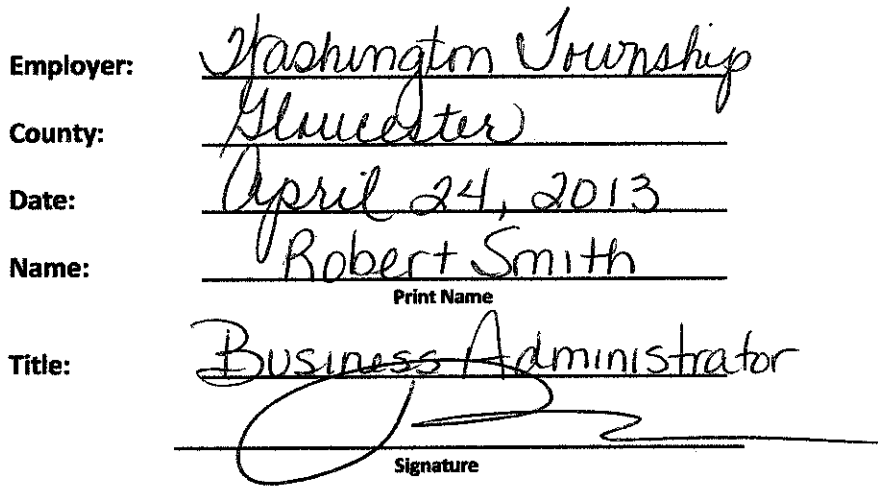 Employer: Washington Township
County: Gloucester
Date: April 24, 2013
Name: Robert Smith
Print Name
Title: Business Administrator
Signature